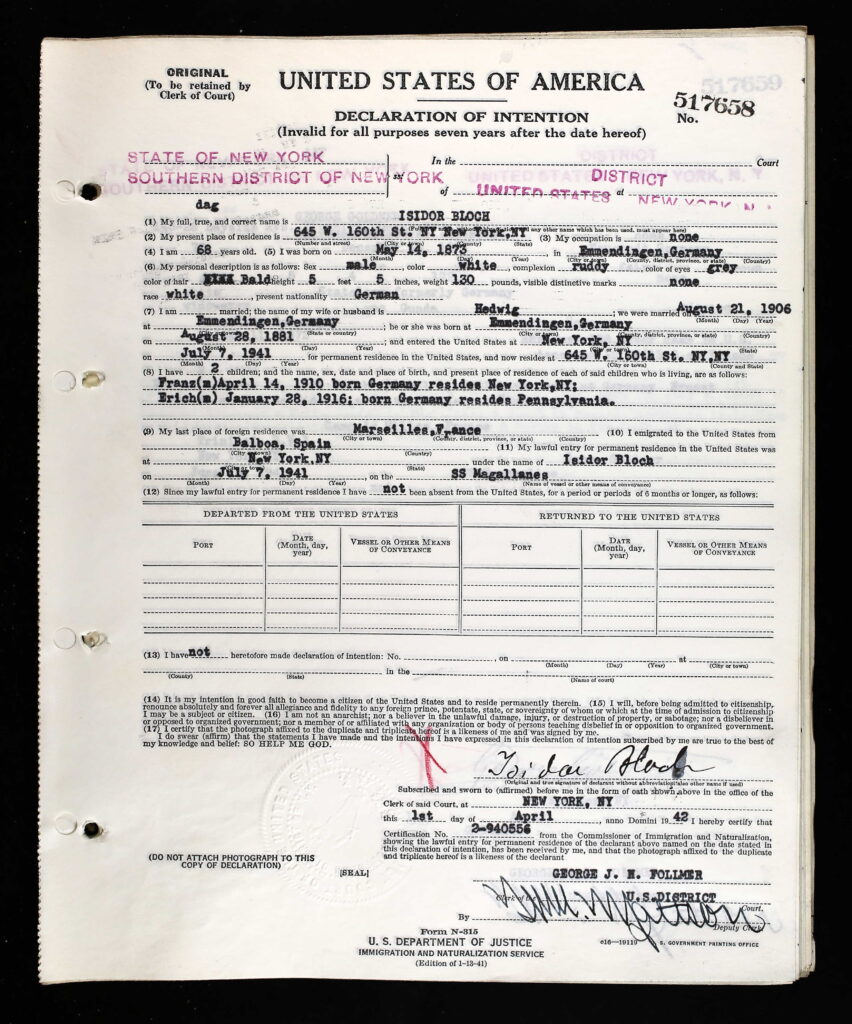 ORIGINAL
(To be retained by
Clerk of Court)
UNITED STATES OF AMERICA
517659
517658
No.
DECLARATION OF INTENTION
(Invalid for all purposes seven years after the date hereof)
STATE OF NEW YORK
SOUTHERN DISTRICT OF NEW YORK
ss:
In the Court
DISTRICT
of UNITED STATES at NEW YORK, N.Y.
dag
(1) My full, true, and correct name is ISIDOR BLOCH
(2) My present place of residence is 645 W. 160th St. NY New York,NY (3) My occupation is none
(Number and street) (City or town) (State)
(4) I am 68 years old. (5) I was born on May 14, 1873, in Emmendingen,Germany
(Month) (Day) (Year) (City or town) (County, district, province, or state) (Country)
(6) My personal description is as follows: Sex male, color white, complexion ruddy color of eyes grey
color of hair Bald height 5 feet 5 inches, weight 130 pounds, visible distinctive marks none
race white, present nationality German
(7) I am married; the name of my wife or husband is Hedwig; we were married on August 21, 1906
(Month) (Day) (Year)
at Emmendingen,Germany; he or she was born at Emmendingen,Germany
on August 28, 1881; and entered the United States at New York, NY
on July 7, 1941 for permanent residence in the United States, and now resides at 645 W. 160th St. NY,NY
(Month) (Day) (Year) (City or town) (County and State)
(8) I have 2 children; and the name, sex, date and place of birth, and present place of residence of each of said children who is living, are as follows:
Franz(m)April 14, 1910 born Germany resides New York,NY;
Erich(m) January 28, 1916; born Germany resides Pennsylvania.
(9) My last place of foreign residence was Marseilles,France (10) I emigrated to the United States from
(City or town) (County, district, province, or state) (Country)
Balboa, Spain (11) My lawful entry for permanent residence in the United States was
(City or town) (Country)
at New York,NY under the name of Isidor Bloch
(State)
on July 7, 1941, on the SS Magallanes
(Month) (Day) (Year) (Name of vessel or other means of conveyance)
(12) Since my lawful entry for permanent residence I have not been absent from the United States, for a period or periods of 6 months or longer, as follows:
DEPARTED FROM THE UNITED STATES RETURNED TO THE UNITED STATES
PORT DATE (Month, day, year) VESSEL OR OTHER MEANS OF CONVEYANCE PORT DATE (Month, day, year) VESSEL OR OTHER MEANS OF CONVEYANCE
(13) I have not heretofore made declaration of intention: No. , on at
(Month) (Day) (Year) (City or town)
in the
(County) (State) (Name of court)
(14) It is my intention in good faith to become a citizen of the United States and to reside permanently therein. (15) I will, before being admitted to citizenship,
renounce absolutely and forever all allegiance and fidelity to any foreign prince, potentate, state, or sovereignty of whom or which at the time of admission to citizenship
I may be a subject or citizen. (16) I am not an anarchist; nor a believer in the unlawful damage, injury, or destruction of property, or sabotage; nor a disbeliever in
or opposed to organized government; nor a member of or affiliated with any organization or body of persons teaching disbelief in or opposition to organized government.
(17) I certify that the photograph affixed to the duplicate and triplicate hereof is a likeness of me and was signed by me.
I do swear (affirm) that the statements I have made and the intentions I have expressed in this declaration of intention subscribed by me are true to the best of
my knowledge and belief: SO HELP ME GOD.
Isidor Bloch
(Original and true signature of declarant without abbreviation, also other name if used)
Subscribed and sworn to (affirmed) before me in the form of oath shown above in the office of the
Clerk of said Court, at NEW YORK, NY
this 1st day of April, anno Domini 19 42 I hereby certify that
Certification No. 2-940556 from the Commissioner of Immigration and Naturalization,
showing the lawful entry for permanent residence of the declarant above named on the date stated in
this declaration of intention, has been received by me, and that the photograph affixed to the duplicate
and triplicate hereof is a likeness of the declarant
(DO NOT ATTACH PHOTOGRAPH TO THIS
COPY OF DECLARATION)
[SEAL]
GEORGE J. H. FOLLMER
Clerk of the U.S.DISTRICT Court.
By Deputy Clerk
Form N-315
U. S. DEPARTMENT OF JUSTICE
IMMIGRATION AND NATURALIZATION SERVICE
(Edition of 1-13-41)
c16—19110 U. S. GOVERNMENT PRINTING OFFICE